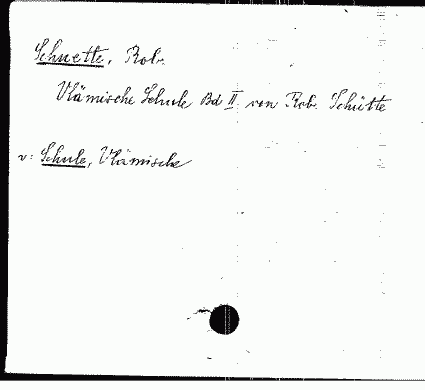 Schuette, Rob.
Vlämische Schule Bd II von Rob. Schütte
v: Schule, Vlämische